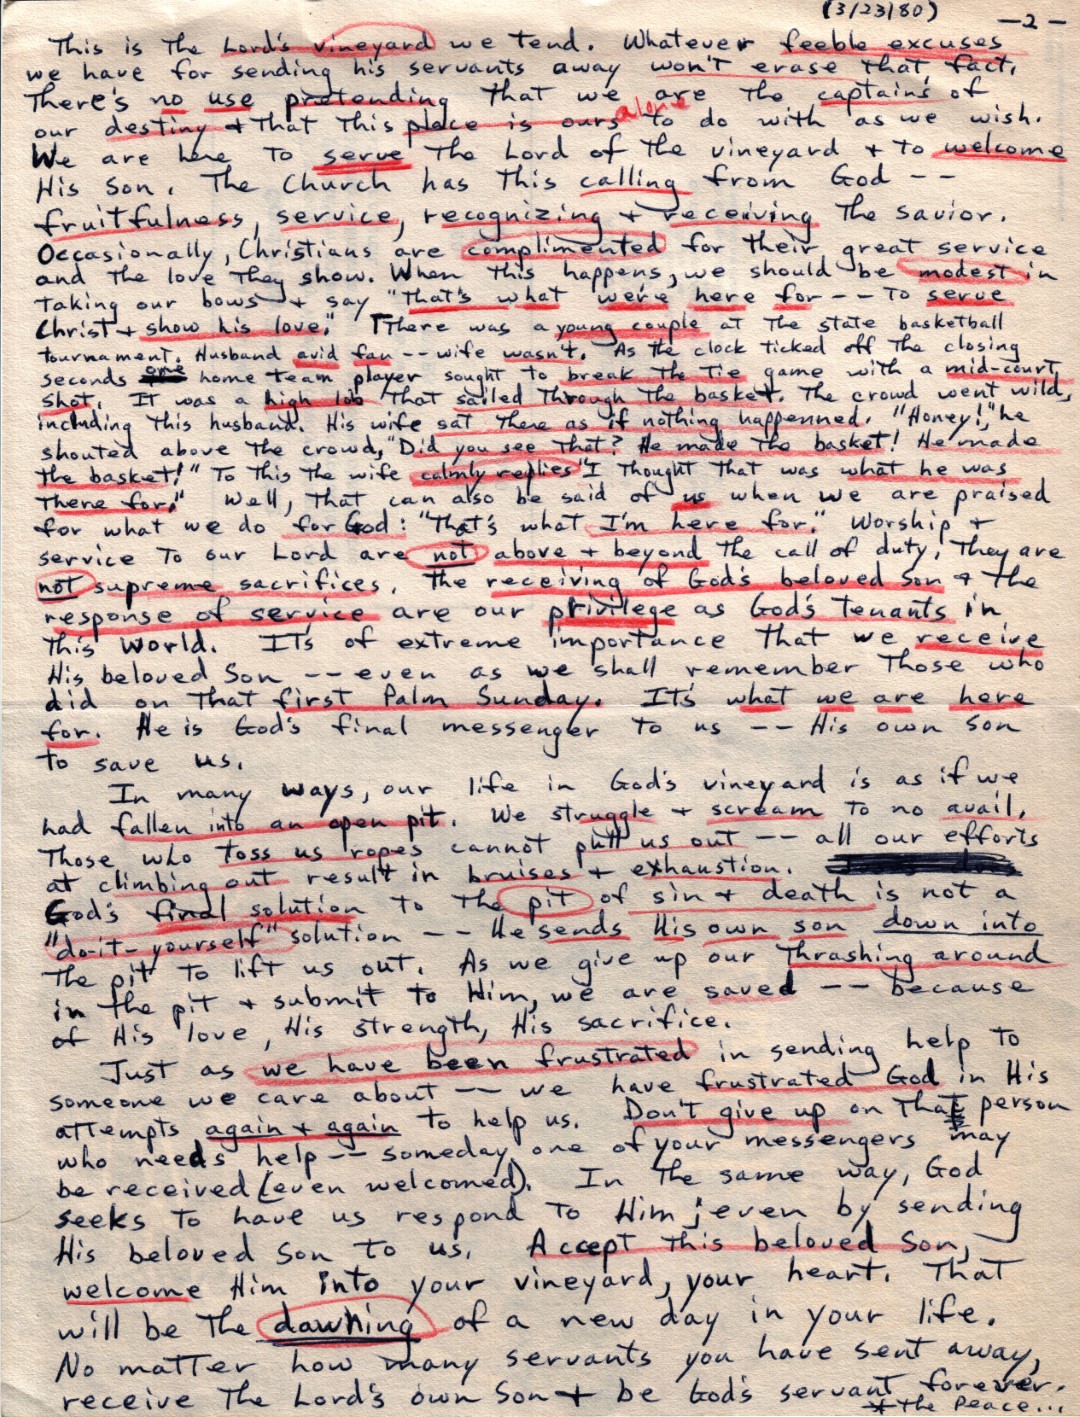 (3/23/80) -2-
This is the Lord's vineyard we tend. Whatever feeble excuses
we have for sending his servants away won't erase that fact.
There's no use pretending that we are the captains of
our destiny + that this place is ours alone to do with as we wish.
We are here to serve the Lord of the vineyard + to welcome
His Son. The Church has this calling from God --
fruitfulness, service, recognizing + receiving the savior.
Occasionally, Christians are complimented for their great service
and the love they show. When this happens, we should be modest in
taking our bows + say "That's what we're here for -- to serve
Christ + show his love." There was a young couple at the state basketball
tournament. Husband avid fan -- wife wasn't. As the clock ticked off the closing
seconds home team player sought to break the tie game with a mid-court
shot. It was a high lob that sailed through the basket. The crowd went wild,
including this husband. His wife sat there as if nothing happenned. "Honey!," he
shouted above the crowd, "Did you see that? He made the basket! He made
the basket!" To this the wife calmly replies "I thought that was what he was
there for." Well, that can also be said of us when we are praised
for what we do for God: "That's what I'm here for." Worship +
service to our Lord are not above + beyond the call of duty, they are
not supreme sacrifices. The receiving of God's beloved Son + the
response of service are our privilege as God's tenants in
this world. It's of extreme importance that we receive
His beloved Son -- even as we shall remember those who
did on that first Palm Sunday. It's what we are here
for. He is God's final messenger to us -- His own Son
to save us.
In many ways, our life in God's vineyard is as if we
had fallen into an open pit. We struggle + scream to no avail.
Those who toss us ropes cannot pull us out -- all our efforts
at climbing out result in bruises + exhaustion.
God's final solution to the pit of sin + death is not a
"do-it-yourself" solution -- He sends His own son down into
the pit to lift us out. As we give up our thrashing around
in the pit + submit to Him, we are saved -- because
of His love, His strength, His sacrifice.
Just as we have been frustrated in sending help to
someone we care about -- we have frustrated God in His
attempts again + again to help us. Don't give up on that person
who needs help -- someday one of your messengers may
be received (even welcomed). In the same way, God
seeks to have us respond to Him; even by sending
His beloved Son to us. Accept this beloved Son,
welcome Him into your vineyard, your heart. That
will be the dawning of a new day in your life.
No matter how many servants you have sent away,
receive the Lord's own Son + be God's servant forever.
* the peace...